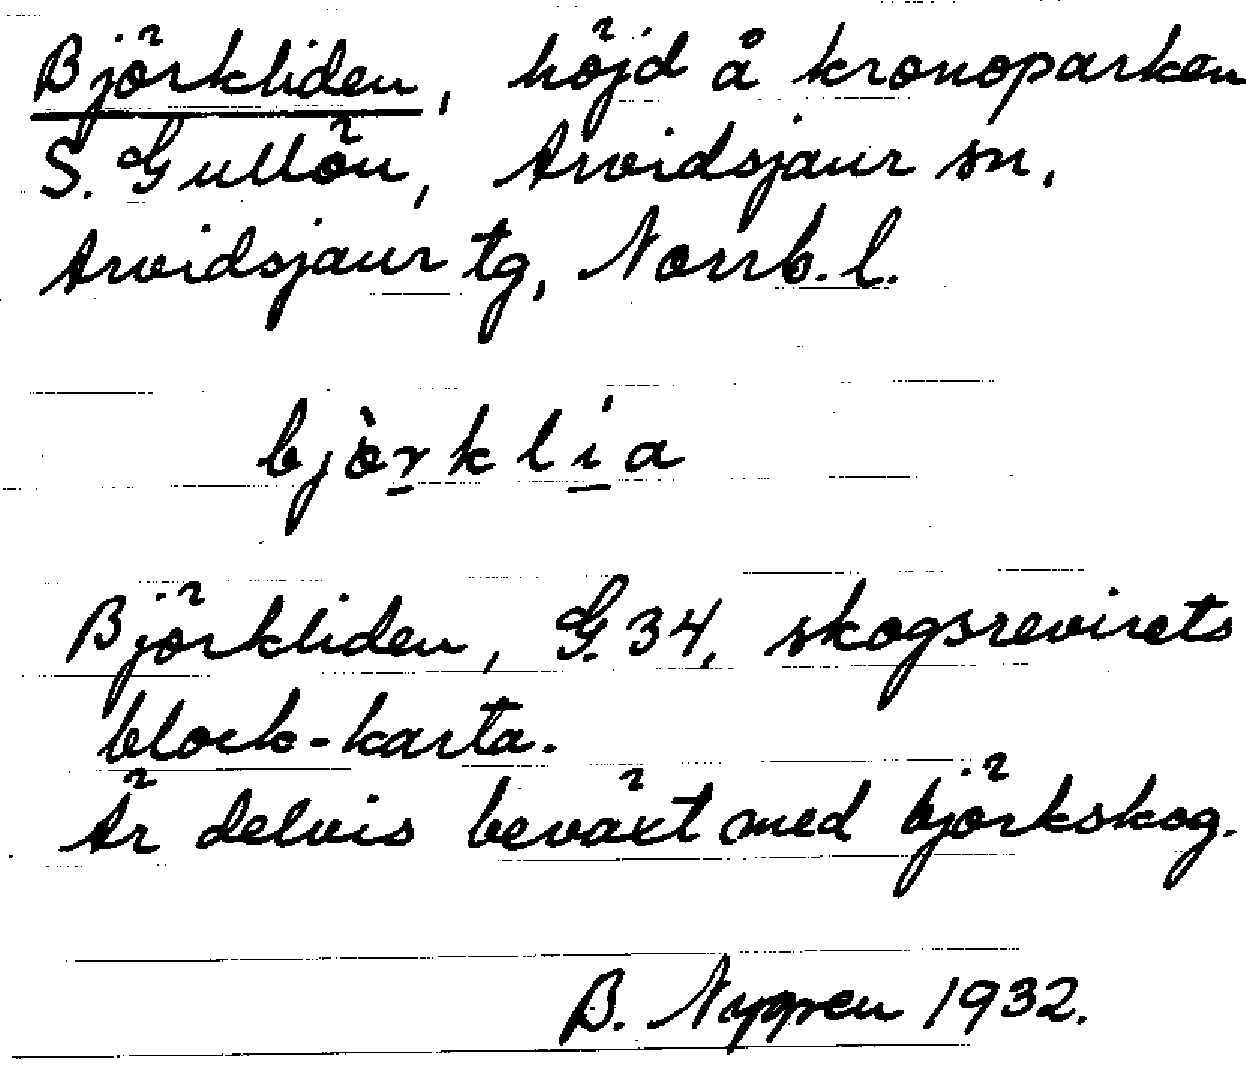 Björkliden, höjd å kronoparken
S. Gullön, Arvidsjaur sn,
Arvidsjaur tg, Norrb. l.
bjò̈rklia
Björkliden, G. 34, skogsrevirets
block-karta.
Är delvis beväxt med björkskog.
B. Nygren 1932.